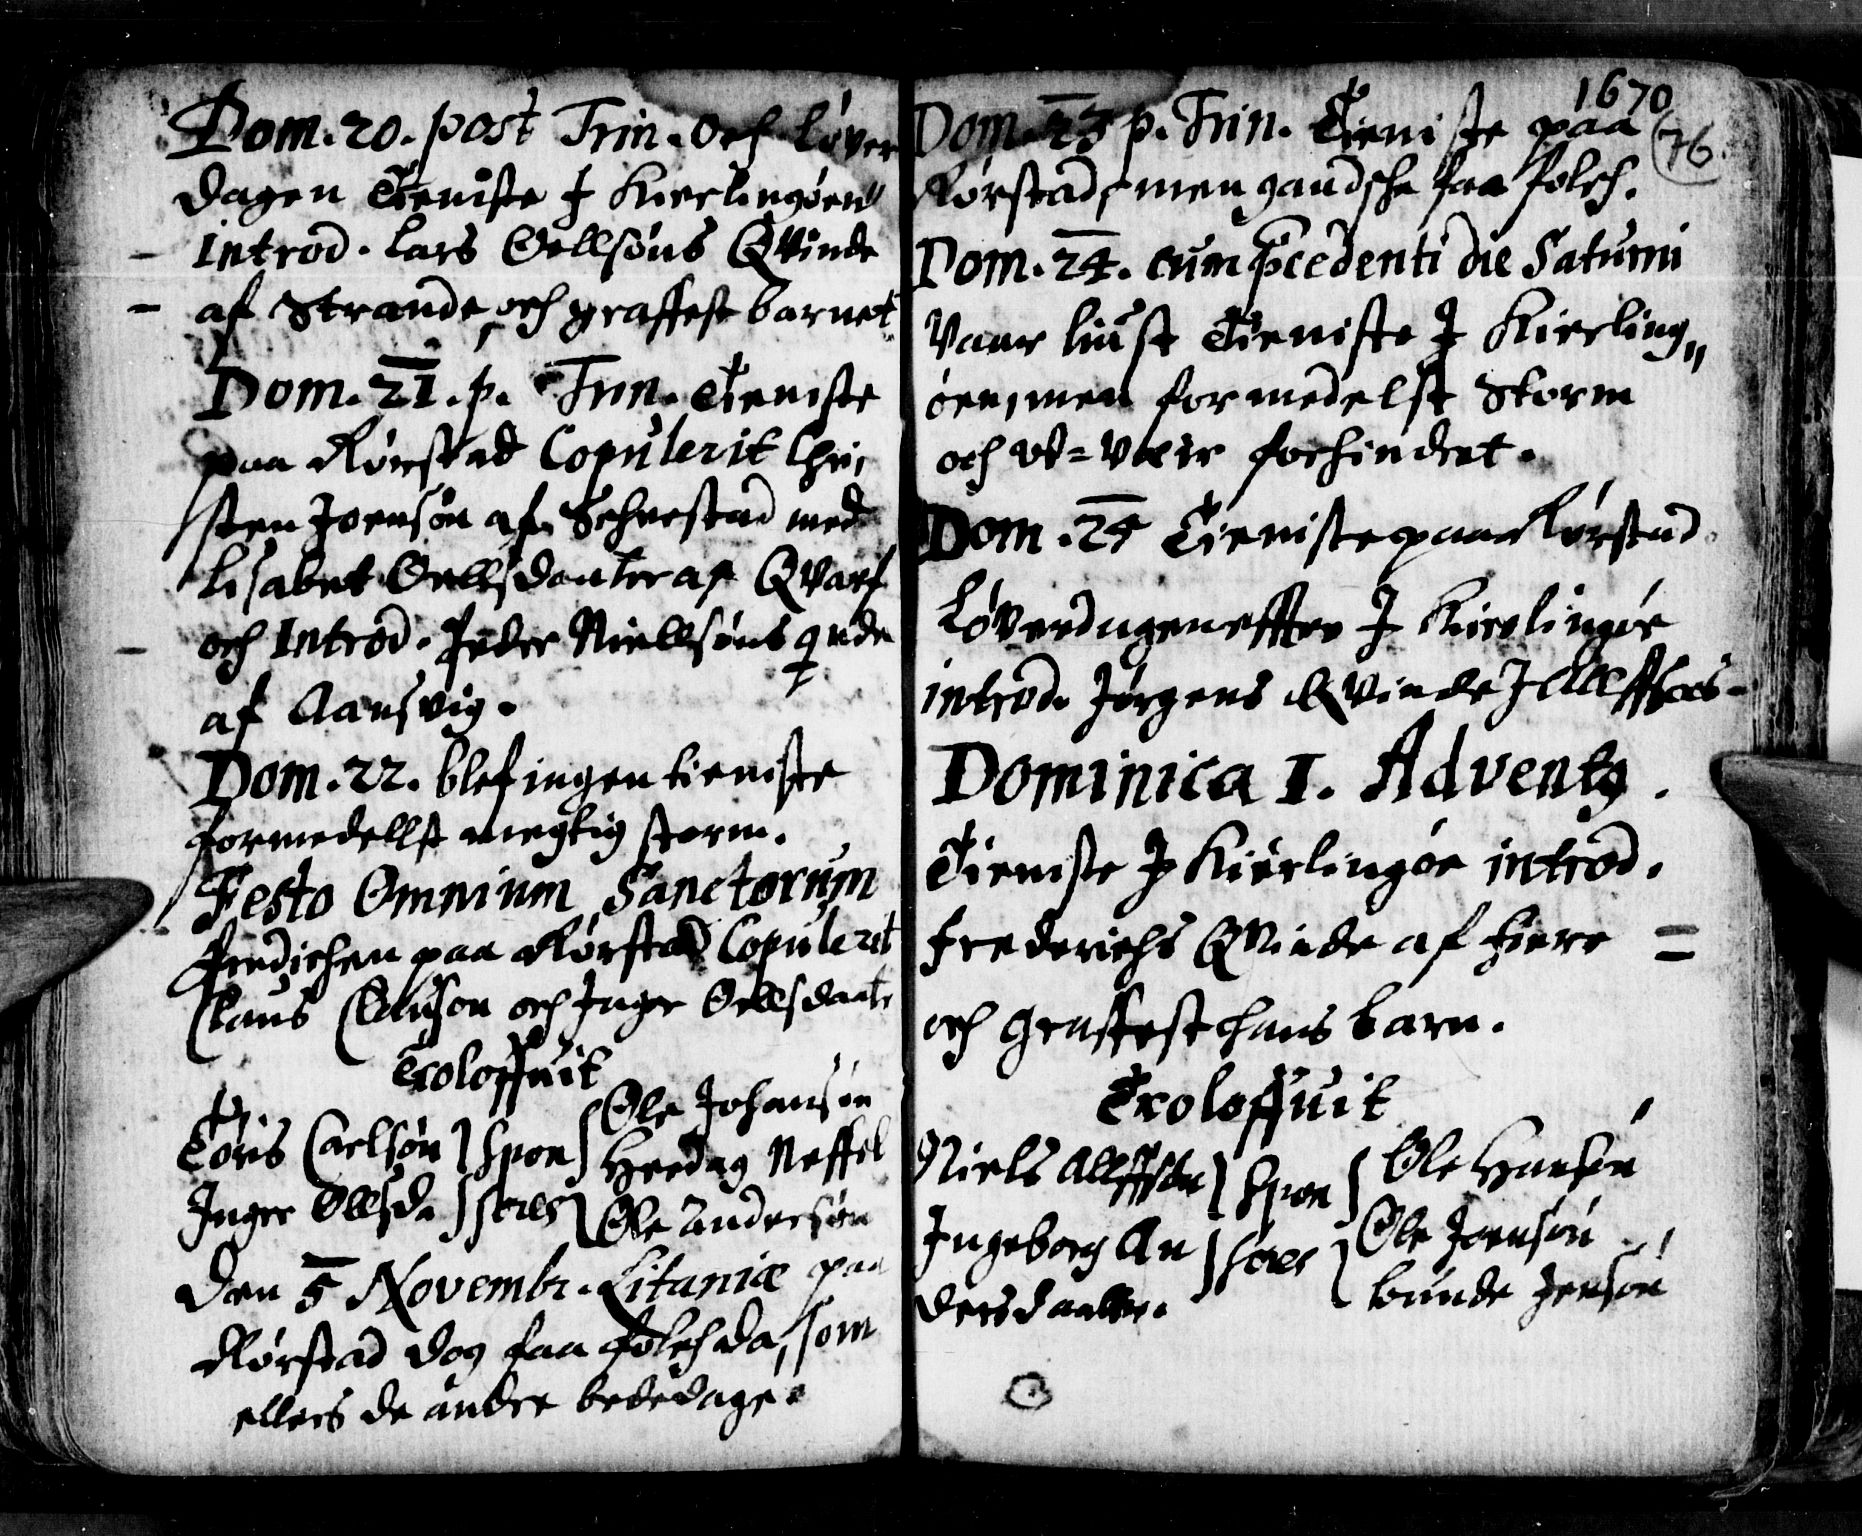 Dom. 20. post Trin. och løver
dagen Tieniste I Kierlingøen
Introd. Lars Oellsøns Qvinde
af Strande, och graffest barnet
Dom. 21. p. Trin. Tieniste
paa Rørstad Copulerit Chri,
sten Joensøn af med
Lisabet Oellsdaatter af Qvarf
och Introd. Peder Niellsøns qvde
af Aansvig.
Dom. 22. blef ingen tieniste
formedellst megtig storm.
Festo Omnium Sanctorum
Predichen paa Rørstad Copulerit
Claus Clausøn och Inger Oellsdaatr
Troloffuit
Toris Carlsøn } Spon { Ole Johansøn
Heedag Neffel
Inger Ollsda } sores { Ole Andersøn
Den 5 Novembr. Litaniæ paa
Rørstad dog faa folch da, som
ellers de andre bededage.
1670
76.
Dom. 23 p. Trin. Tieniste paa
Rørstad, men gandsche faa folch.
Dom. 24. cum pcedenti die Saturni
Vaar liust Tieniste I Kierling„
øen, men formedelst Storm
och W=Veir forhindret.
Dom. 25 Tieniste paa Rørstad.
Løverdagen effter I Kierlingøe
introd. Jørgens Qvinde I
Dominica I. Advents.
Tieniste I Kierlingøe introd.
Frederichs Qvinde af Fiere =
och graffest hans barn.
Troloffuit
Niels Allffsøn } Spon { Ole Hansøn
Ingeborg An } sores { Ole Joensøn
dersdaatter. bunde Jensøn